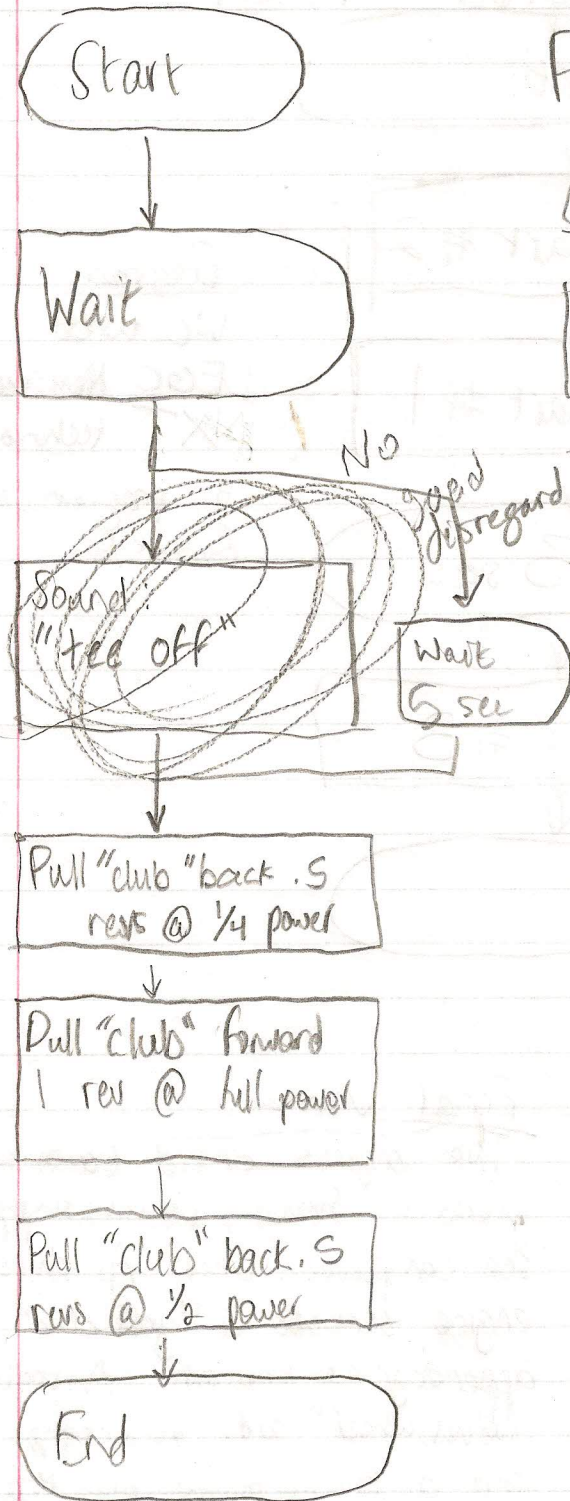 Start
Wait
NO
good
disregard
Sound:
"tee off"
Wait
5 sec
Pull "club" back .5
revs @ 1/4 power
Pull "club" forward
1 rev @ full power
Pull "club" back .5
revs @ 1/2 power
End